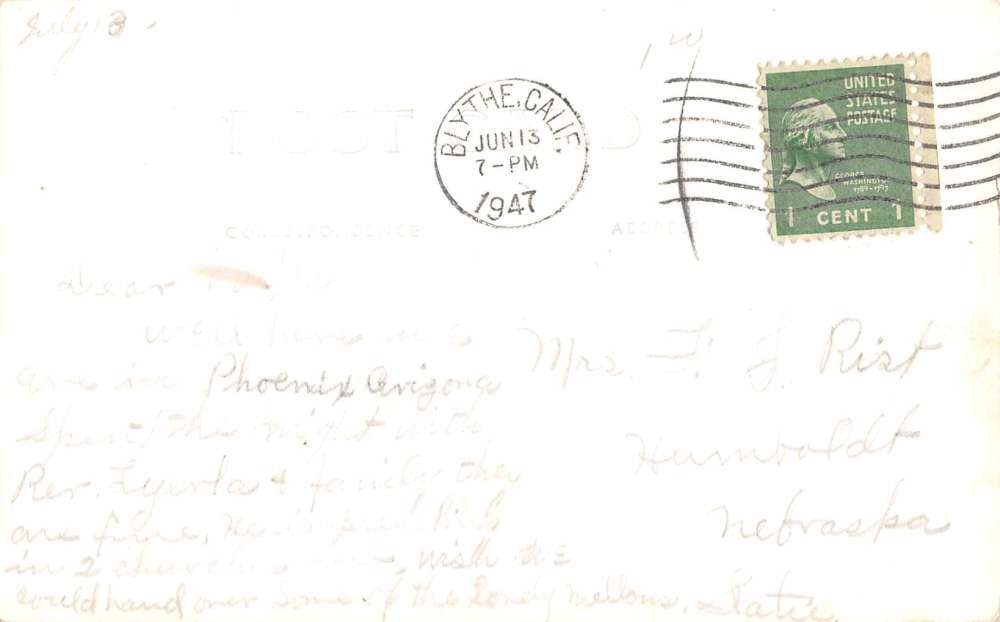 July 13.
POST CARD
BLYTHE, CALIF.
JUN 13
7-PM
1947
UNITED
STATES
POSTAGE
GEORGE
WASHINGTON
1789-1797
1 CENT 1
CORRESPONDENCE
ADDRESS
Dear
Well here we
are in Phoenix Arizona
Spent the night with
Rev. Lyerla & family they
are fine. He
in 2 churches wish we
could hand over some of the lovely mellons. Katie
Mrs. F. J. Rist
Humboldt
Nebraska